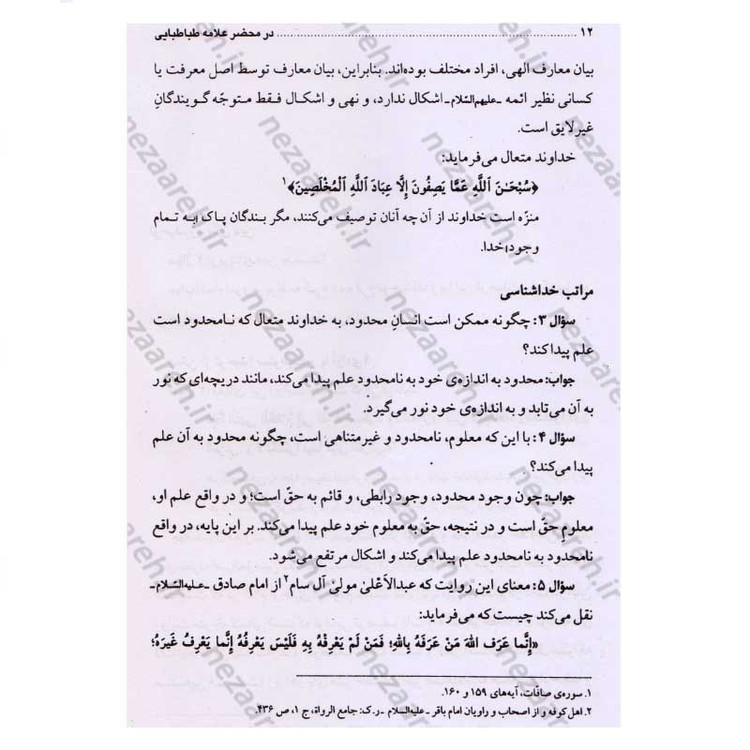 ۱۲ ........................................ در محضر علامه طباطبایی
بیان معارف الهی، افراد مختلف بوده‌اند. بنابراین، بیان معارف توسط اصل معرفت یا
کسانی نظیر ائمه ـ علیهم‌السّلام ـ اشکال ندارد، و نهی و اشکال فقط متوجّه گویندگانِ
غیرلایق است.
خداوند متعال می‌فرماید:
﴿سُبْحَـٰنَ ٱللَّهِ عَمَّا يَصِفُونَ إِلَّا عِبَادَ ٱللَّهِ ٱلْمُخْلَصِينَ﴾۱
منزّه است خداوند از آن چه آنان توصیف می‌کنند، مگر بندگان پاک [به تمام
وجود] خدا.
مراتب خداشناسی
سؤال ۳: چگونه ممکن است انسانِ محدود، به خداوند متعال که نامحدود است
علم پیدا کند؟
جواب: محدود به اندازه‌ی خود به نامحدود علم پیدا می‌کند، مانند دریچه‌ای که نور
به آن می‌تابد و به اندازه‌ی خود نور می‌گیرد.
سؤال ۴: با این که معلوم، نامحدود و غیرمتناهی است، چگونه محدود به آن علم
پیدا می‌کند؟
جواب: چون وجود محدود، وجود رابطی، و قائم به حقّ است؛ و در واقع علم او،
معلومِ حقّ است و در نتیجه، حقّ به معلوم خود علم پیدا می‌کند. بر این پایه، در واقع
نامحدود به نامحدود علم پیدا می‌کند و اشکال مرتفع می‌شود.
سؤال ۵: معنای این روایت که عبدالاَعْلیٰ مولیٰ آل سام۲ از امام صادق ـ علیه‌السّلام ـ
نقل می‌کند چیست که می‌فرماید:
«إِنَّما عَرَفَ اللهَ مَنْ عَرَفَهُ بِاللهِ؛ فَمَنْ لَمْ يَعْرِفْهُ بِهِ فَلَيْسَ يَعْرِفُهُ إِنَّما يَعْرِفُ غَيْرَهُ؛
۱. سوره‌ی صافّات، آیه‌های ۱۵۹ و ۱۶۰.
۲. اهل کوفه و از اصحاب و راویان امام باقر ـ علیه‌السّلام ـ ر.ک: جامع الرواة، ج ۱، ص ۴۳۶.
nezaareh.ir